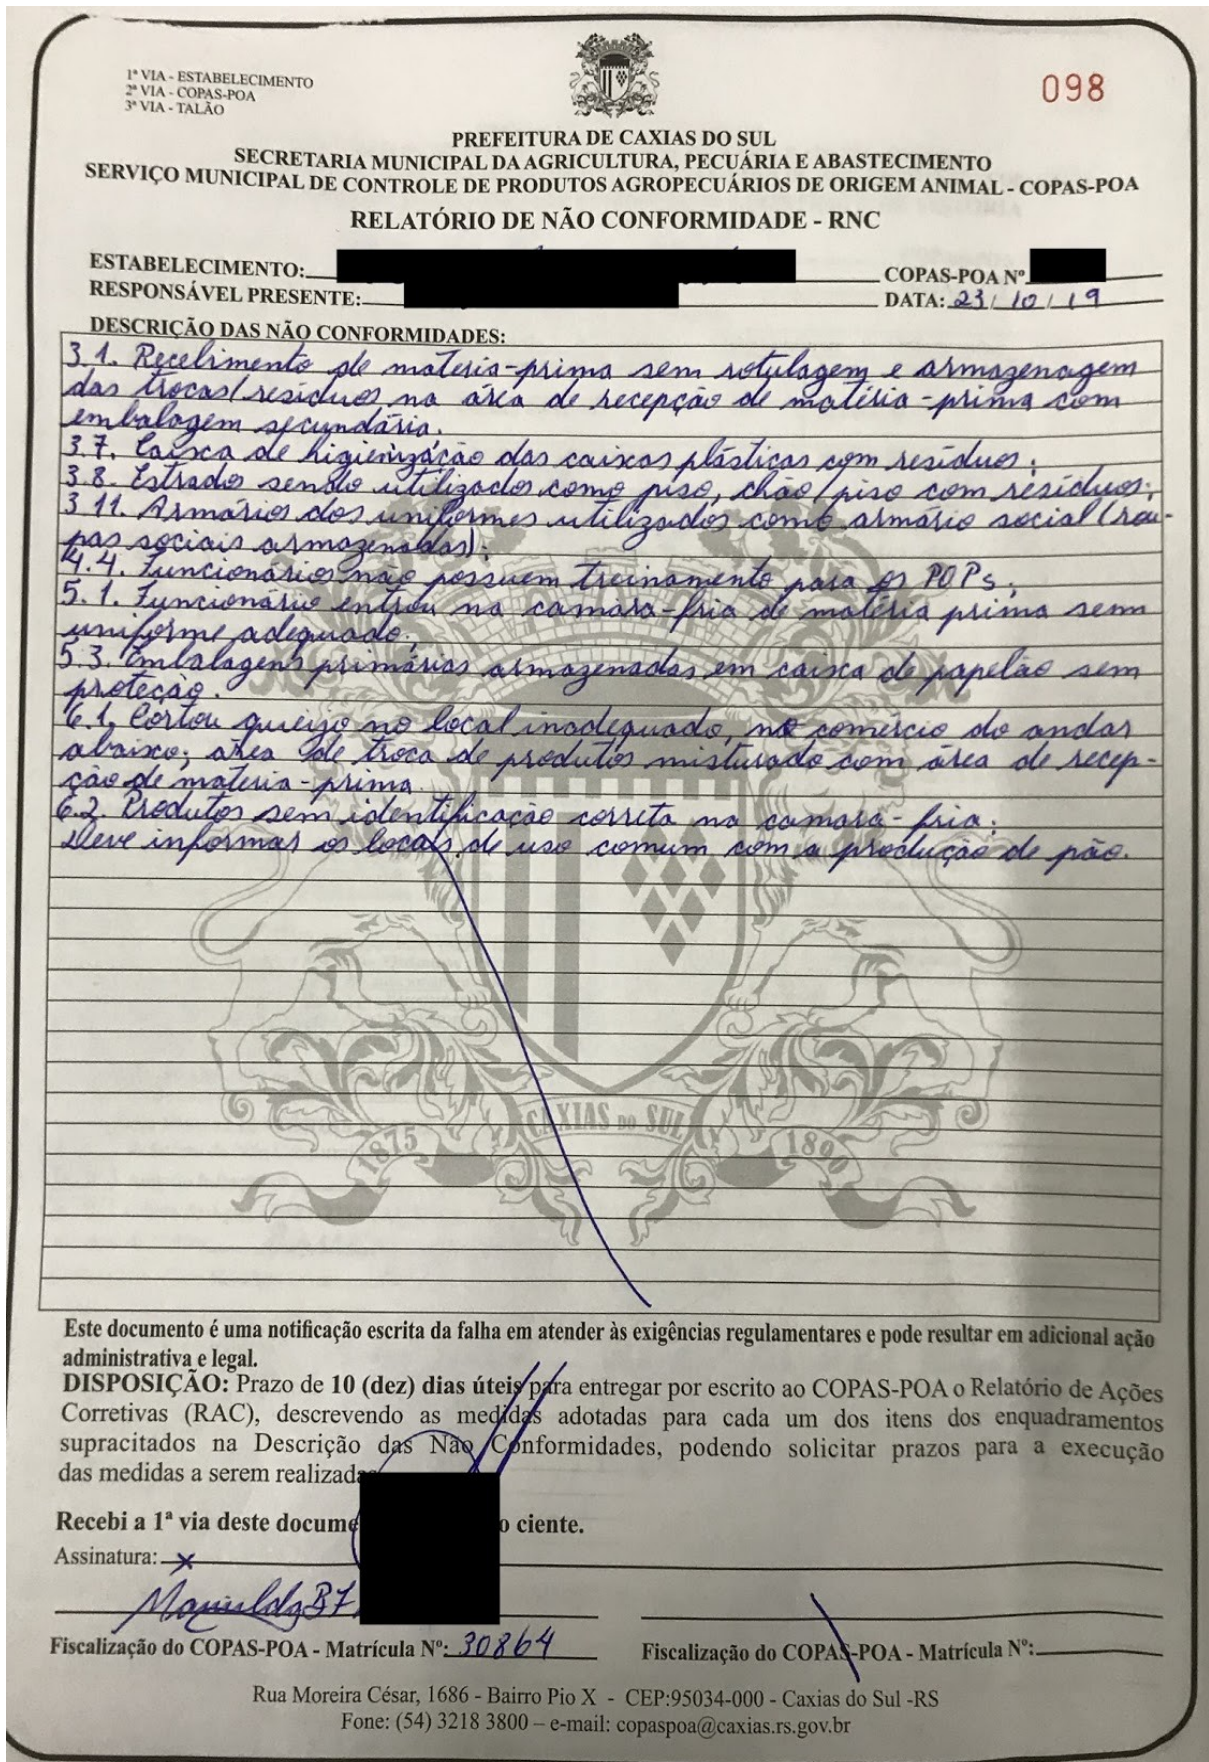 1ª VIA - ESTABELECIMENTO
2ª VIA - COPAS-POA
3ª VIA - TALÃO
098
PREFEITURA DE CAXIAS DO SUL
SECRETARIA MUNICIPAL DA AGRICULTURA, PECUÁRIA E ABASTECIMENTO
SERVIÇO MUNICIPAL DE CONTROLE DE PRODUTOS AGROPECUÁRIOS DE ORIGEM ANIMAL - COPAS-POA
RELATÓRIO DE NÃO CONFORMIDADE - RNC
ESTABELECIMENTO: COPAS-POA Nº
RESPONSÁVEL PRESENTE: DATA: 23/10/19
DESCRIÇÃO DAS NÃO CONFORMIDADES:
3.1. Recebimento de materia-prima sem rotulagem e armazenagem
das trocas/resíduos na área de recepção de matéria-prima com
embalagem secundária.
3.7. Caixa de higienização das caixas plásticas com resíduos;
3.8. Estrados sendo utilizados como piso, chão/piso com resíduos;
3.11. Armários dos uniformes utilizados como armário social (rou-
pas sociais armazenadas);
4.4. Funcionários não possuem treinamento para os POPs;
5.1. Funcionário entrou na camâra-fria de matéria prima sem
uniforme adequado;
5.3. Embalagens primárias armazenadas em caixa de papelão sem
proteção.
6.1. Cortou queijo no local inadequado, no comércio do andar
abaixo; área de troca de produtos misturado com área de recep-
ção de matéria-prima.
6.2. Produtos sem identificação correta na camara-fria;
Deve informar os locais de uso comum com a produção de pão.
CAXIAS DO SUL
1875 1890
Este documento é uma notificação escrita da falha em atender às exigências regulamentares e pode resultar em adicional ação
administrativa e legal.
DISPOSIÇÃO: Prazo de 10 (dez) dias úteis para entregar por escrito ao COPAS-POA o Relatório de Ações
Corretivas (RAC), descrevendo as medidas adotadas para cada um dos itens dos enquadramentos
supracitados na Descrição das Não Conformidades, podendo solicitar prazos para a execução
das medidas a serem realizadas
Recebi a 1ª via deste docume o ciente.
Assinatura: x
Fiscalização do COPAS-POA - Matrícula Nº: 30864 Fiscalização do COPAS-POA - Matrícula Nº:
Rua Moreira César, 1686 - Bairro Pio X - CEP:95034-000 - Caxias do Sul -RS
Fone: (54) 3218 3800 – e-mail: copaspoa@caxias.rs.gov.br